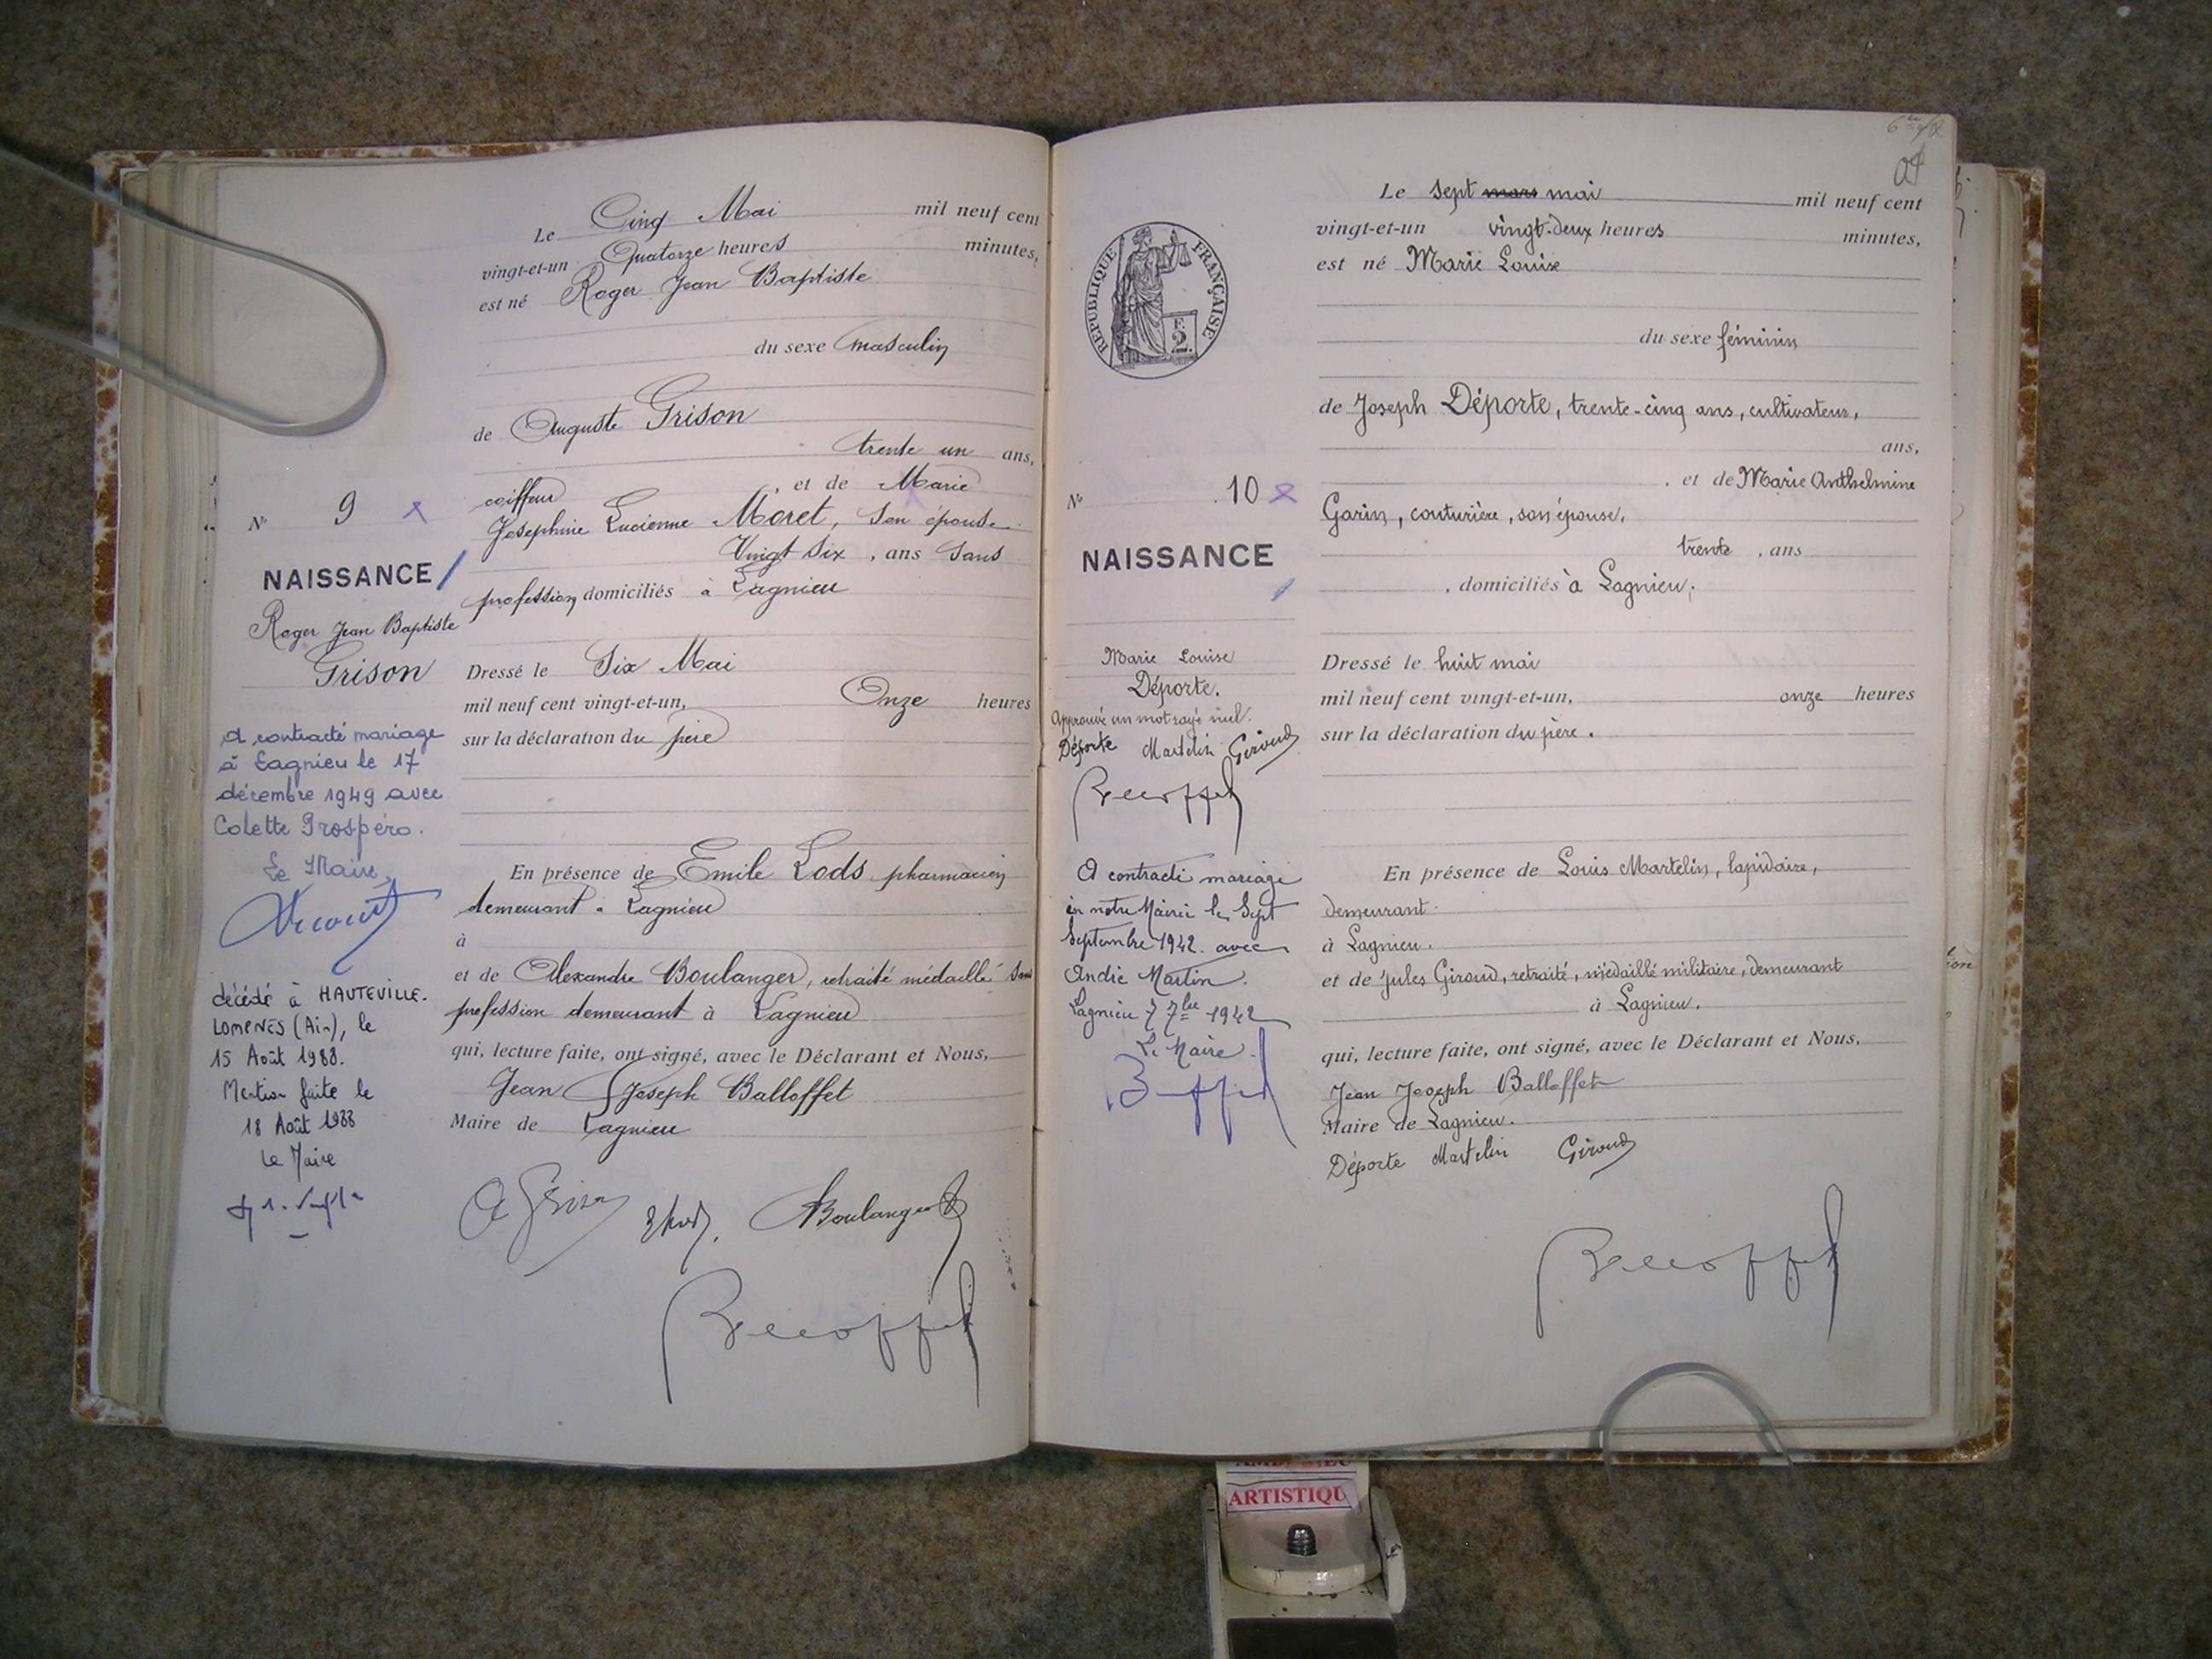 Le Cinq Mai mil neuf cent
vingt-et-un Quatorze heures minutes,
est né Roger Jean Baptiste
du sexe masculin
de Auguste Grison
trente un ans,
coiffeur, et de Marie
Josephine Lucienne Moret, son épouse
Vingt Six, ans Sans
profession domiciliés à Lagnieu
N° 9
NAISSANCE
Roger Jean Baptiste
Grison
Dressé le Six Mai
mil neuf cent vingt-et-un, Onze heures
sur la déclaration du père
A contracté mariage
à Lagnieu le 17
décembre 1949 avec
Colette Prospéro.
Le Maire,
décédé à HAUTEVILLE-
LOMPNES (Ain), le
15 Août 1988.
Mention faite le
18 Août 1988
Le Maire
En présence de Emile Lods pharmacien
demeurant à Lagnieu
à
et de Alexandre Boulanger, retraité médaillé Sans
profession demeurant à Lagnieu
qui, lecture faite, ont signé, avec le Déclarant et Nous,
Jean Joseph Balloffet
Maire de Lagnieu
A Grison Boulanger
Le sept mars mai mil neuf cent
vingt-et-un vingt-deux heures minutes,
est né Marie Louise
du sexe féminin
de Joseph Déporte, trente-cinq ans, cultivateur,
ans,
, et de Marie Anthelmine
Garin, couturière, son épouse,
trente, ans
, domiciliés à Lagnieu;
RÉPUBLIQUE FRANÇAISE
F.
2.
N° 10
NAISSANCE
Marie Louise
Déporte.
Approuvé un mot rayé nul.
Déporte Martelin Giroud
A contracté mariage
en notre Mairie le Sept
Septembre 1942 avec
André Martin.
Lagnieu 7 7bre 1942
Le Maire
Dressé le huit mai
mil neuf cent vingt-et-un, onze heures
sur la déclaration du père.
En présence de Louis Martelin, lapidaire,
demeurant
à Lagnieu.
et de Jules Giroud, retraité, médaillé militaire, demeurant
à Lagnieu.
qui, lecture faite, ont signé, avec le Déclarant et Nous,
Jean Joseph Balloffet
Maire de Lagnieu.
Déporte Martelin Giroud
ARTISTIQU